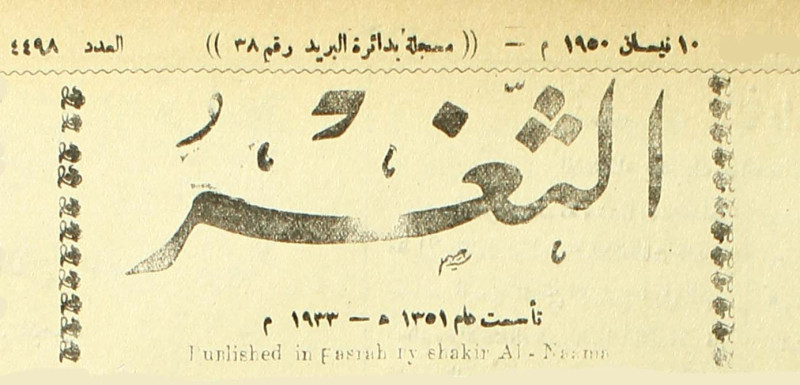 ١٠ نيسان ١٩٥٠ م — ((مسجلة بدائرة البريد رقم ٣٨)) العدد ٤٤٩٨
الثغر
تأسست عام ١٣٥١ ه — ١٩٣٣ م
Published in Basrah by shakir Al - Naama